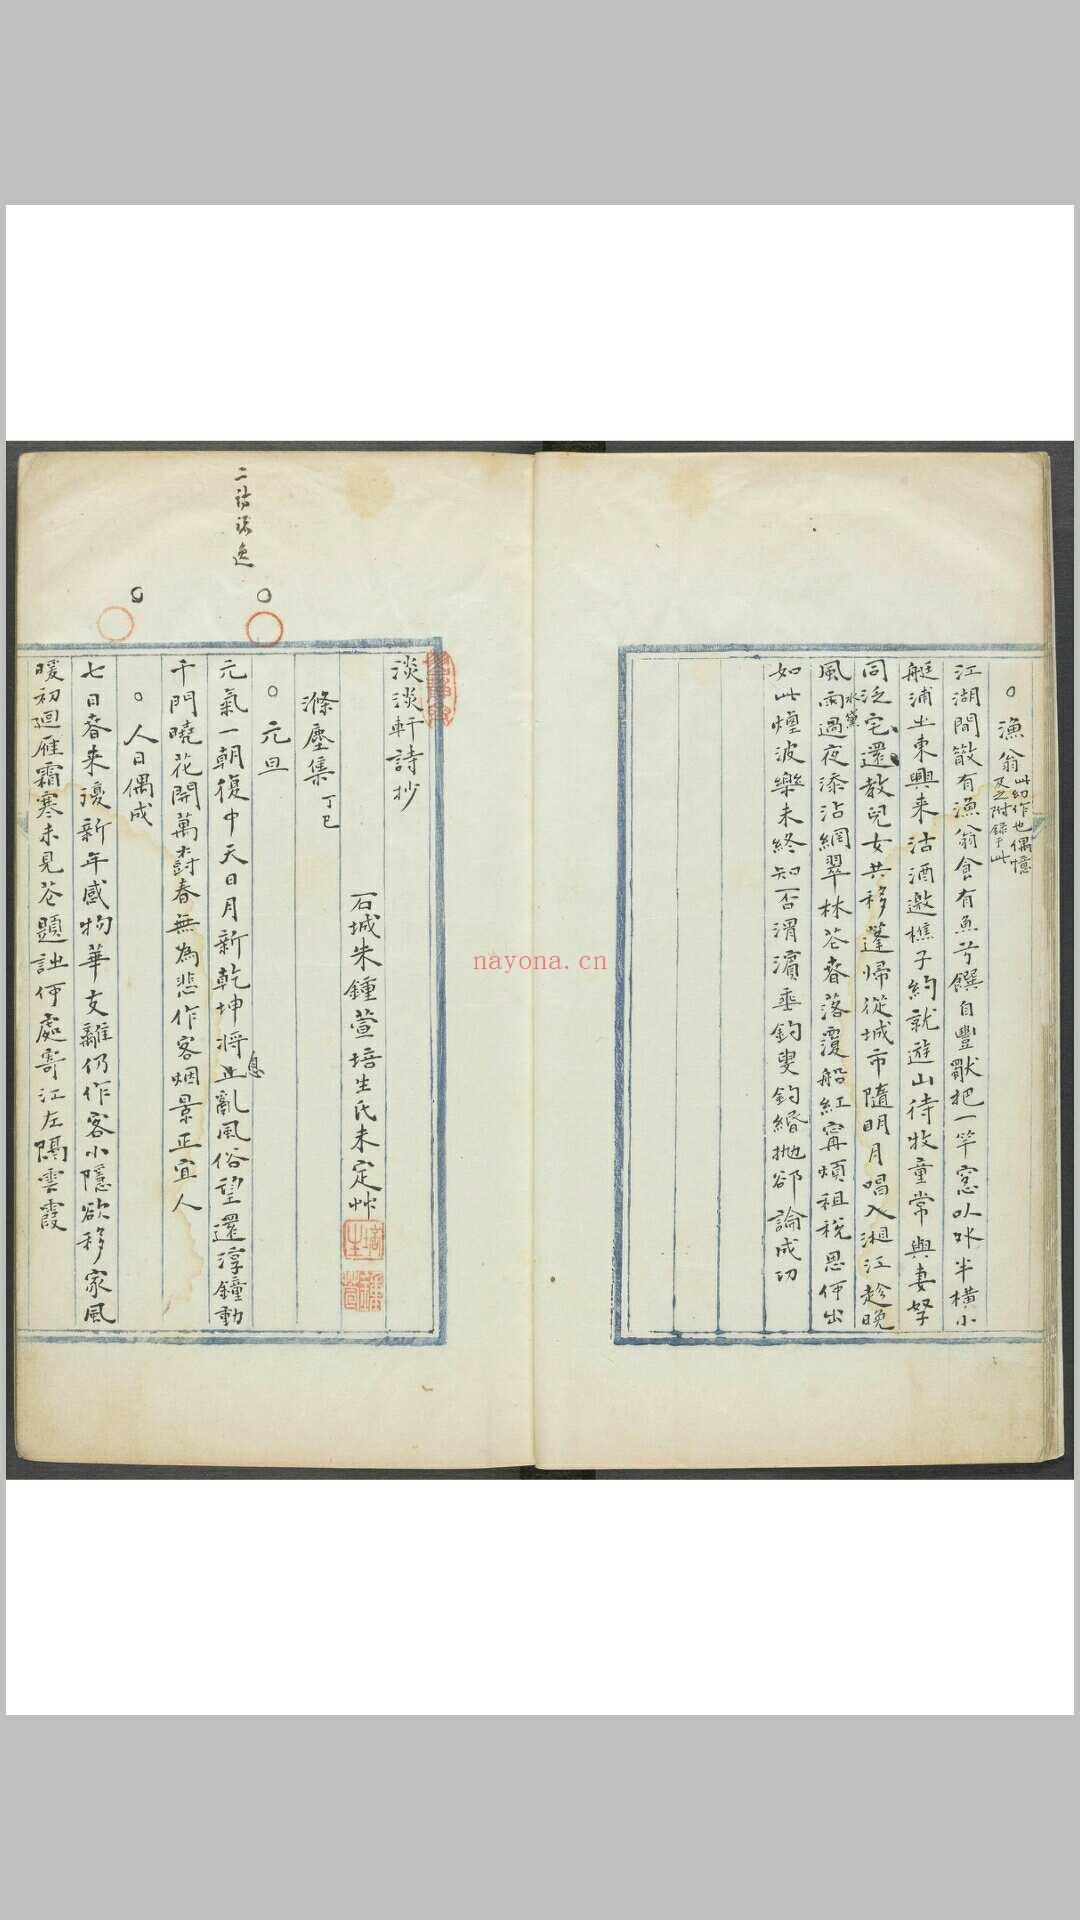 漁翁 此幼作也偶憶
及之附錄于此
江湖間散有漁翁食有魚兮饌自豐獸把一竿窓以外半橫小
艇浦出東興来沽酒邀樵子約就遊山待牧童常與妻孥
同泛宅還教兒女共移蓬歸從城市隨明月唱入湘江趁晚
風雨過夜添沾網翠林花春落覆船紅寧煩租稅思何出
水黛
如此煙波樂未終知否渭濱垂釣叟釣緡抛郤論成功
淡淡軒詩抄
石城朱鍾萱培生氏未定艸
滌塵集 丁巳
元旦
元氣一朝復中天日月新乾坤將止亂風俗望還淳鐘動
息
千門曉花開萬樹春無為悲作客烟景正宜人
人日偶成
七日春来漫新年感物華支離仍作客小隱欲移家風
暖初廻雁霜寒未見花題詩何處寄江左隔雲霞
nayona.cn